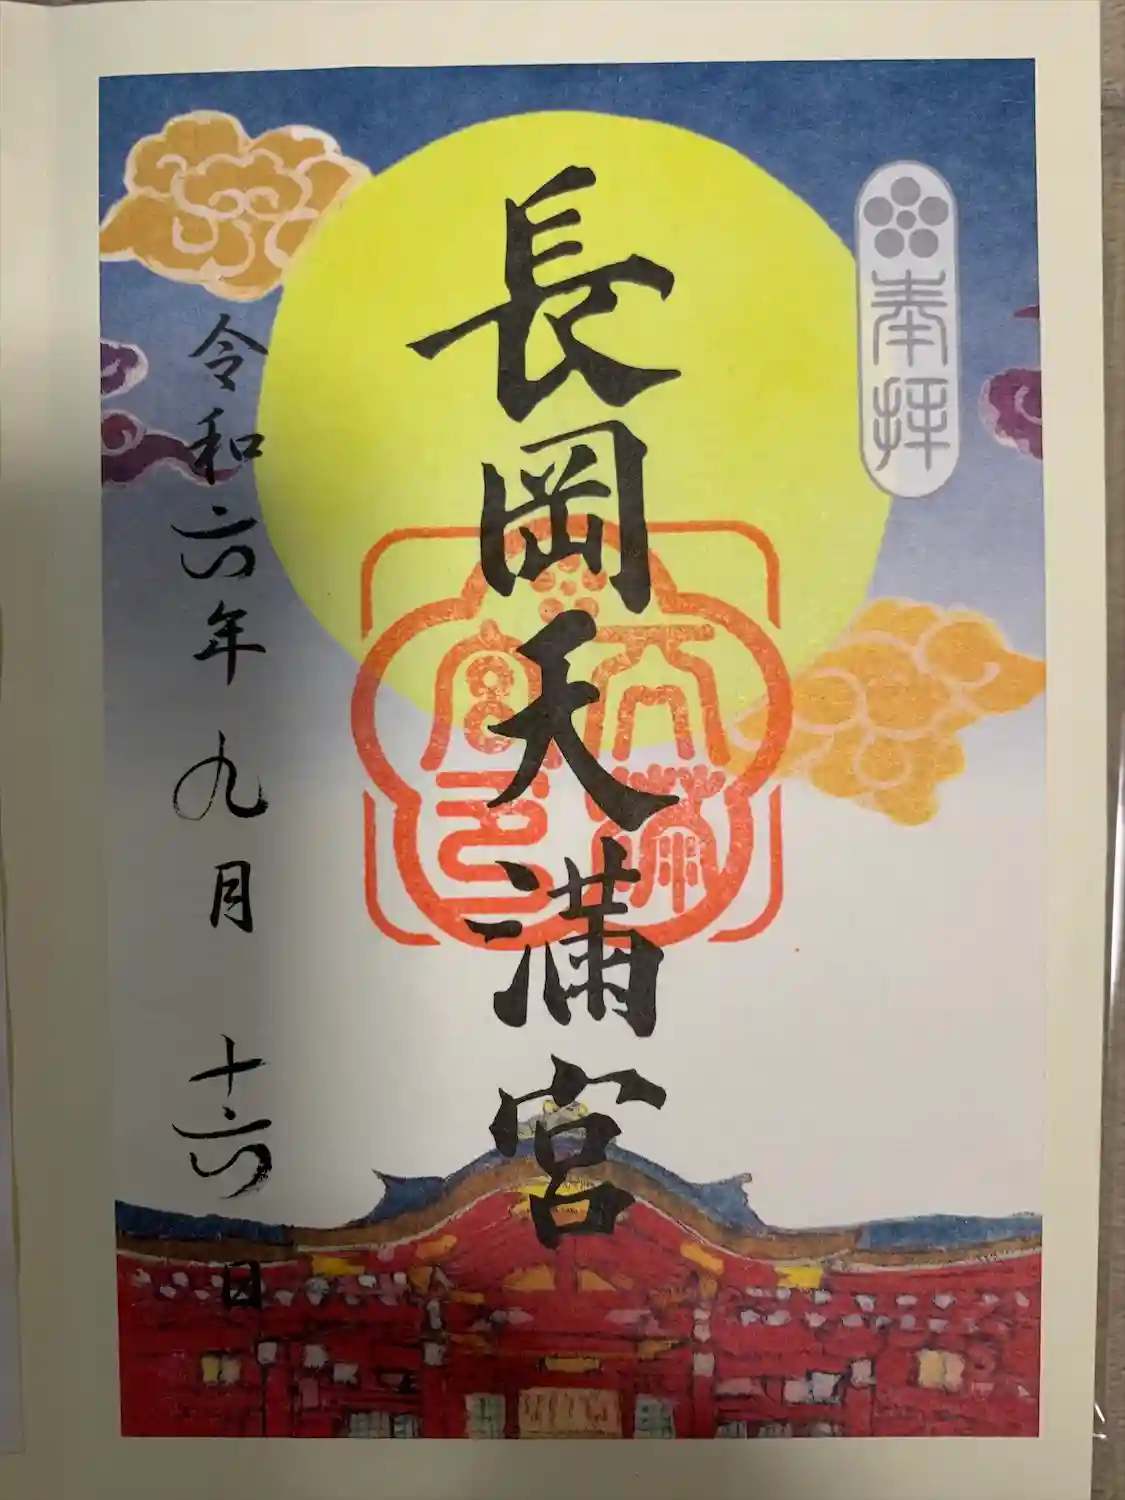 奉拝
長岡天満宮
天満
宮印
令和六年九月十六日